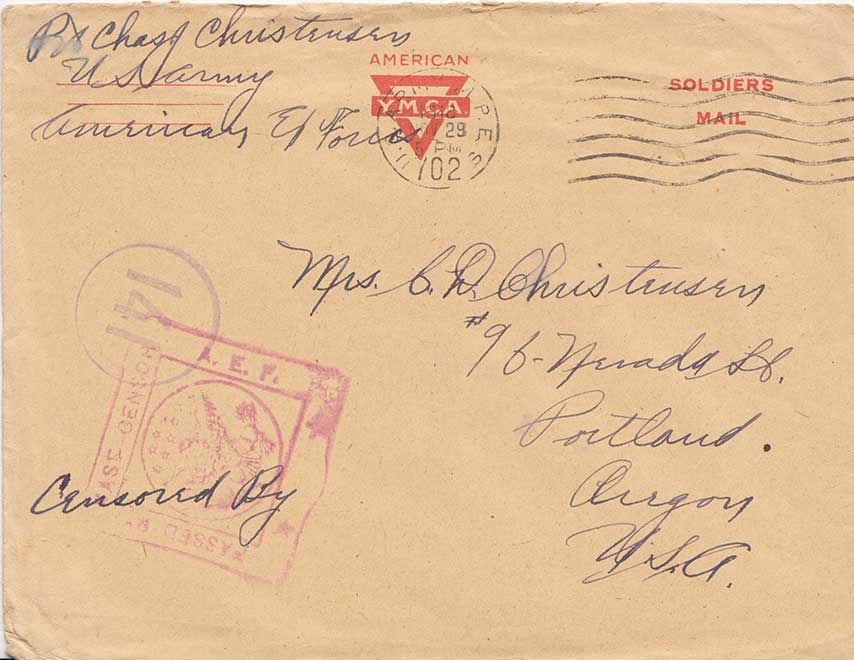 Pvt Chas J Christensen
U S Army
American Ex Forces
AMERICAN
Y.M.C.A.
29
PM
702
SOLDIERS
MAIL
Mrs. C. D. Christensen
#96 - Nevada St.
Portland.
Oregon
U.S.A.
141
A. E. F.
BASE CENSOR
PASSED
Censored By